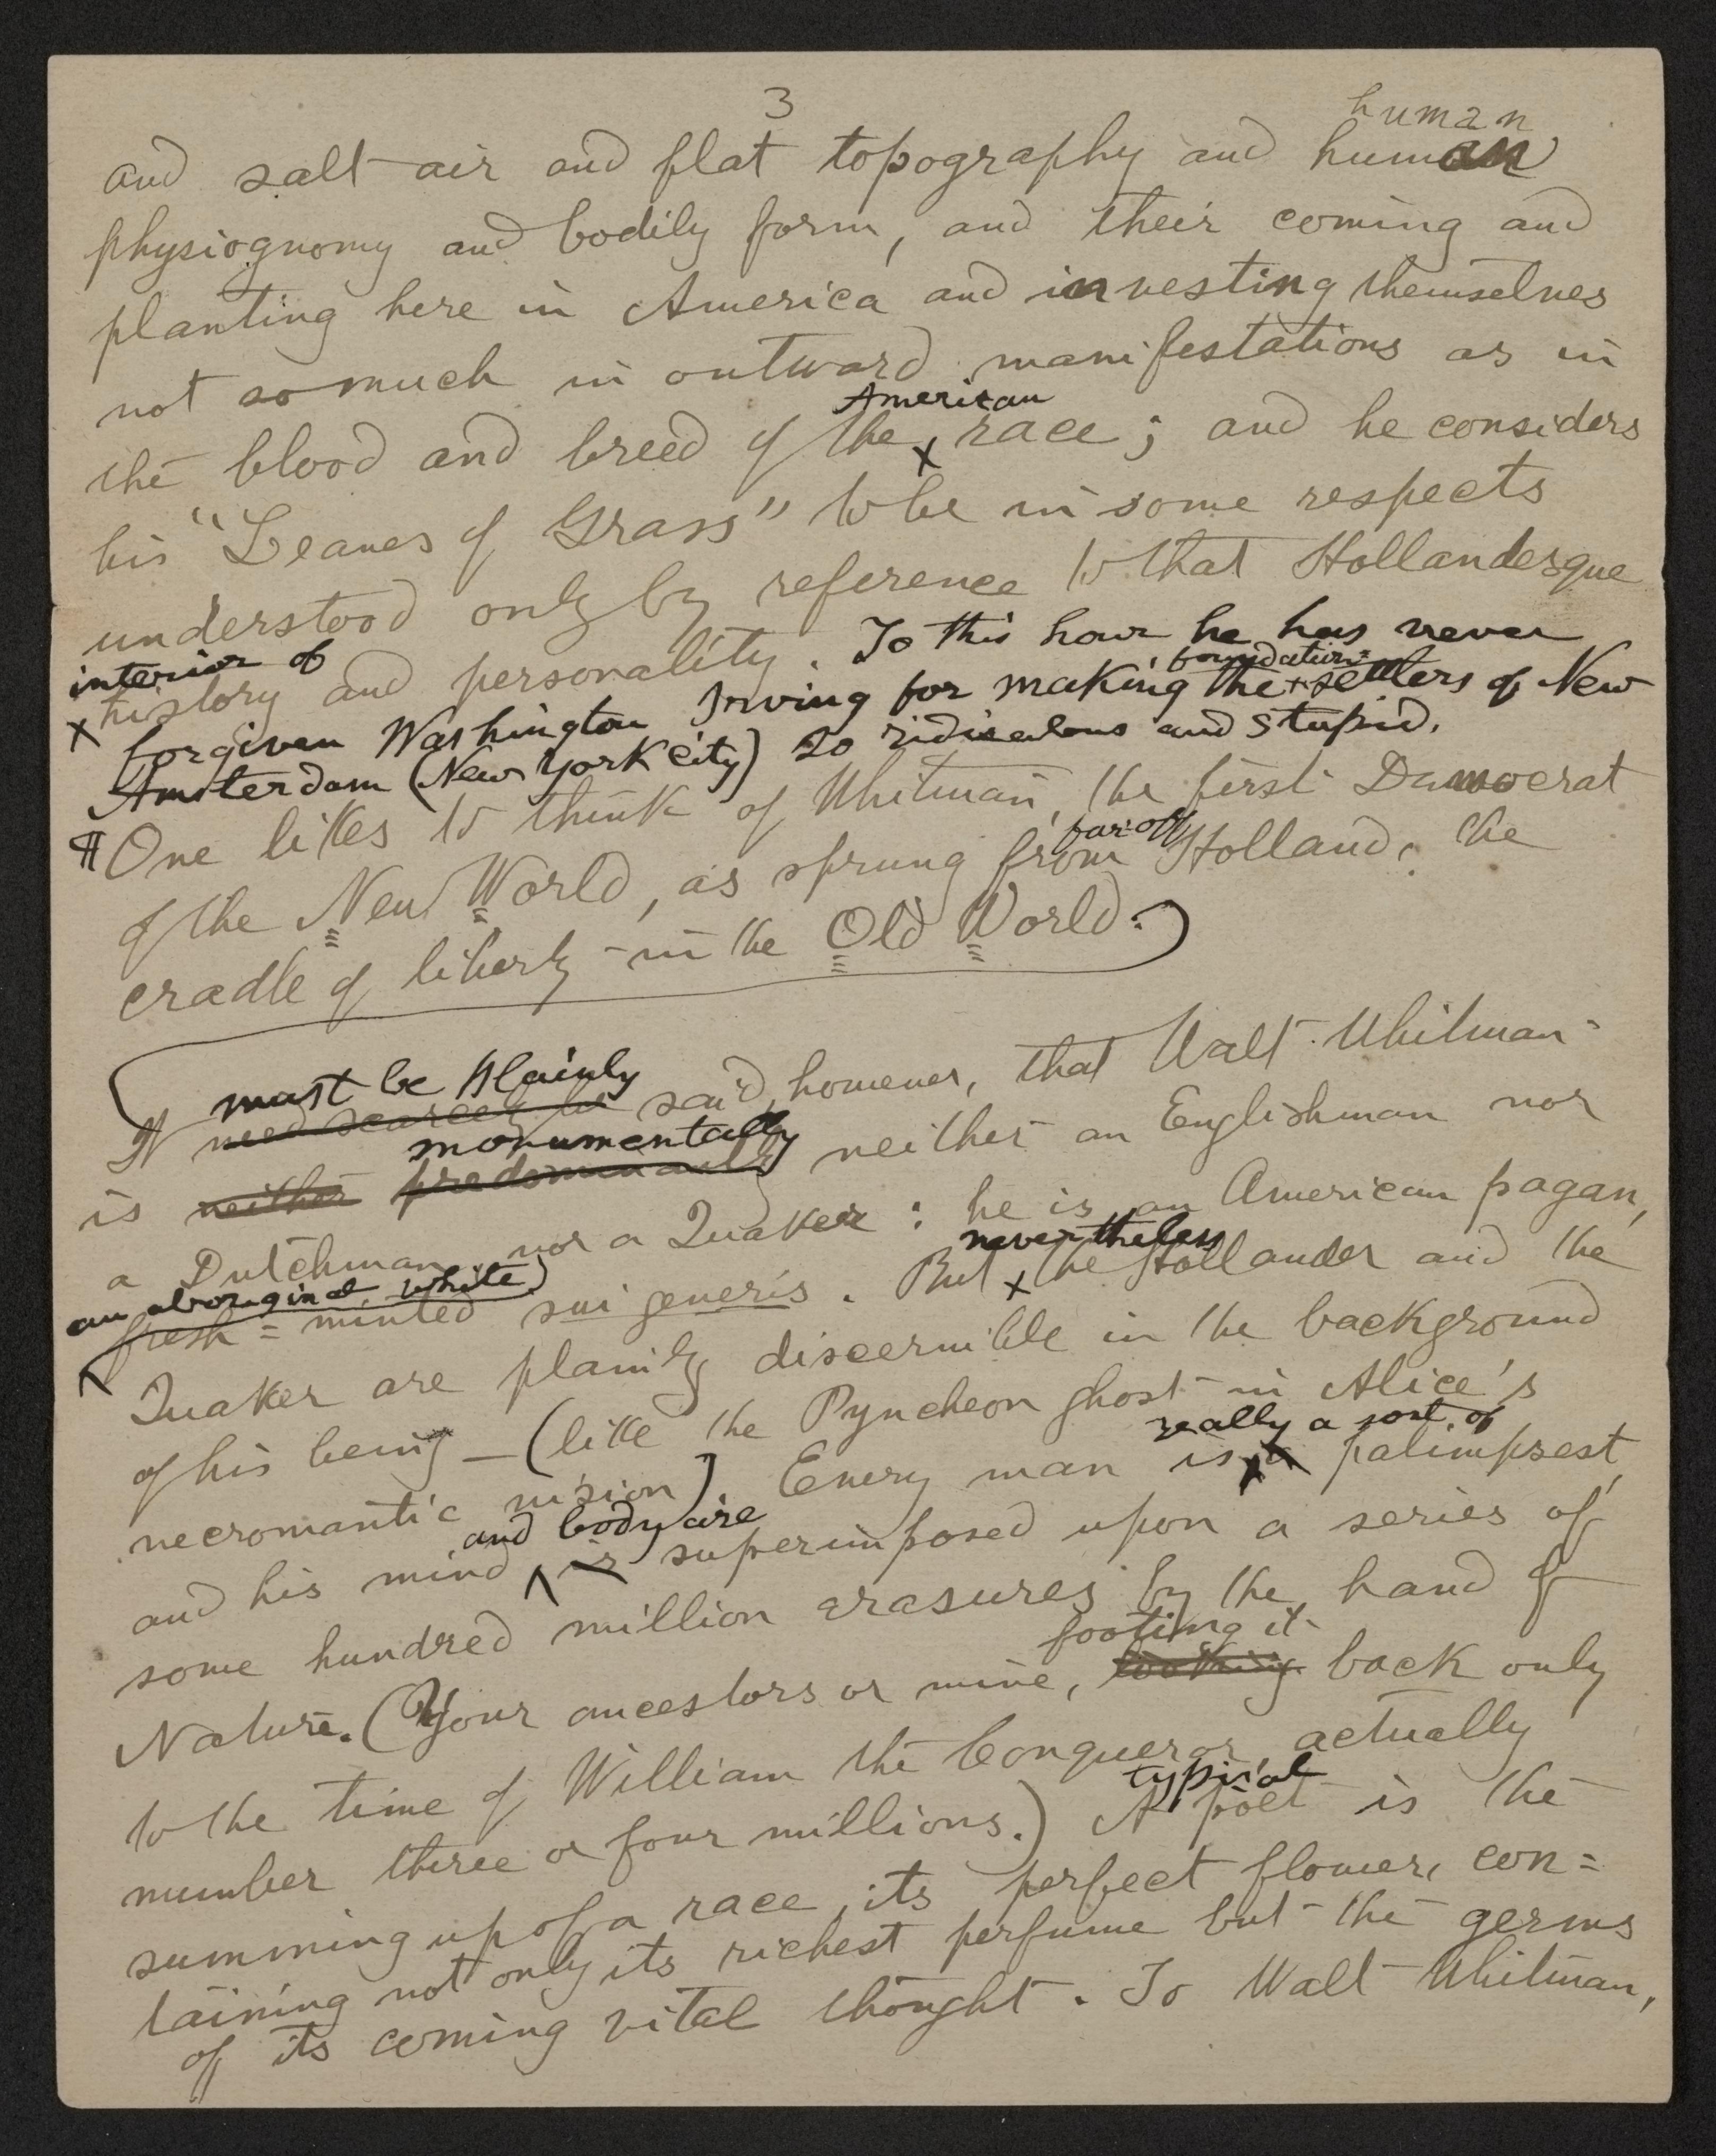 3
human
and salt air and flat topography and human
physiognomy and bodily form, and their coming and
planting here in America and investing themselves
not so much in outward manifestations as in
American
the blood and breed of the x race; and he considers
his "Leaves of Grass" to be in some respects
understood only by reference to that Hollandesque
interior of
x history and personality. To this hour he has never
foundation=
forgiven Washington Irving for making the + settlers of New
Amsterdam (New York city) so ridiculous and stupid.
¶ One likes to think of Whitman, the first Democrat
far-off
of the New World, as sprung from Holland, the
cradle of liberty in the Old World.
must be plainly
It need scarcely be said, however, that Walt Whitman
monumentally
is neither predominantly neither an Englishman nor
a Dutchman nor a Quaker: he is an American pagan,
an aboriginal, white,
nevertheless
fresh=minted sui generis. But x the Hollander and the
Quaker are plainly discernible in the background
of his being — (like the Pyncheon ghost in Alice's
really a sort of
necromantic vision). Every man is x a palimpsest,
and body are
and his mind ^ is superimposed upon a series of
some hundred million erasures by the hand of
footing it
Nature. (Your ancestors or mine, looking back only
to the time of William the Conqueror, actually
typical
number three or four millions.) A poet is the
summing up of a race, its perfect flower, con=
taining not only its richest perfume but the germs
of its coming vital thought. To Walt Whitman,